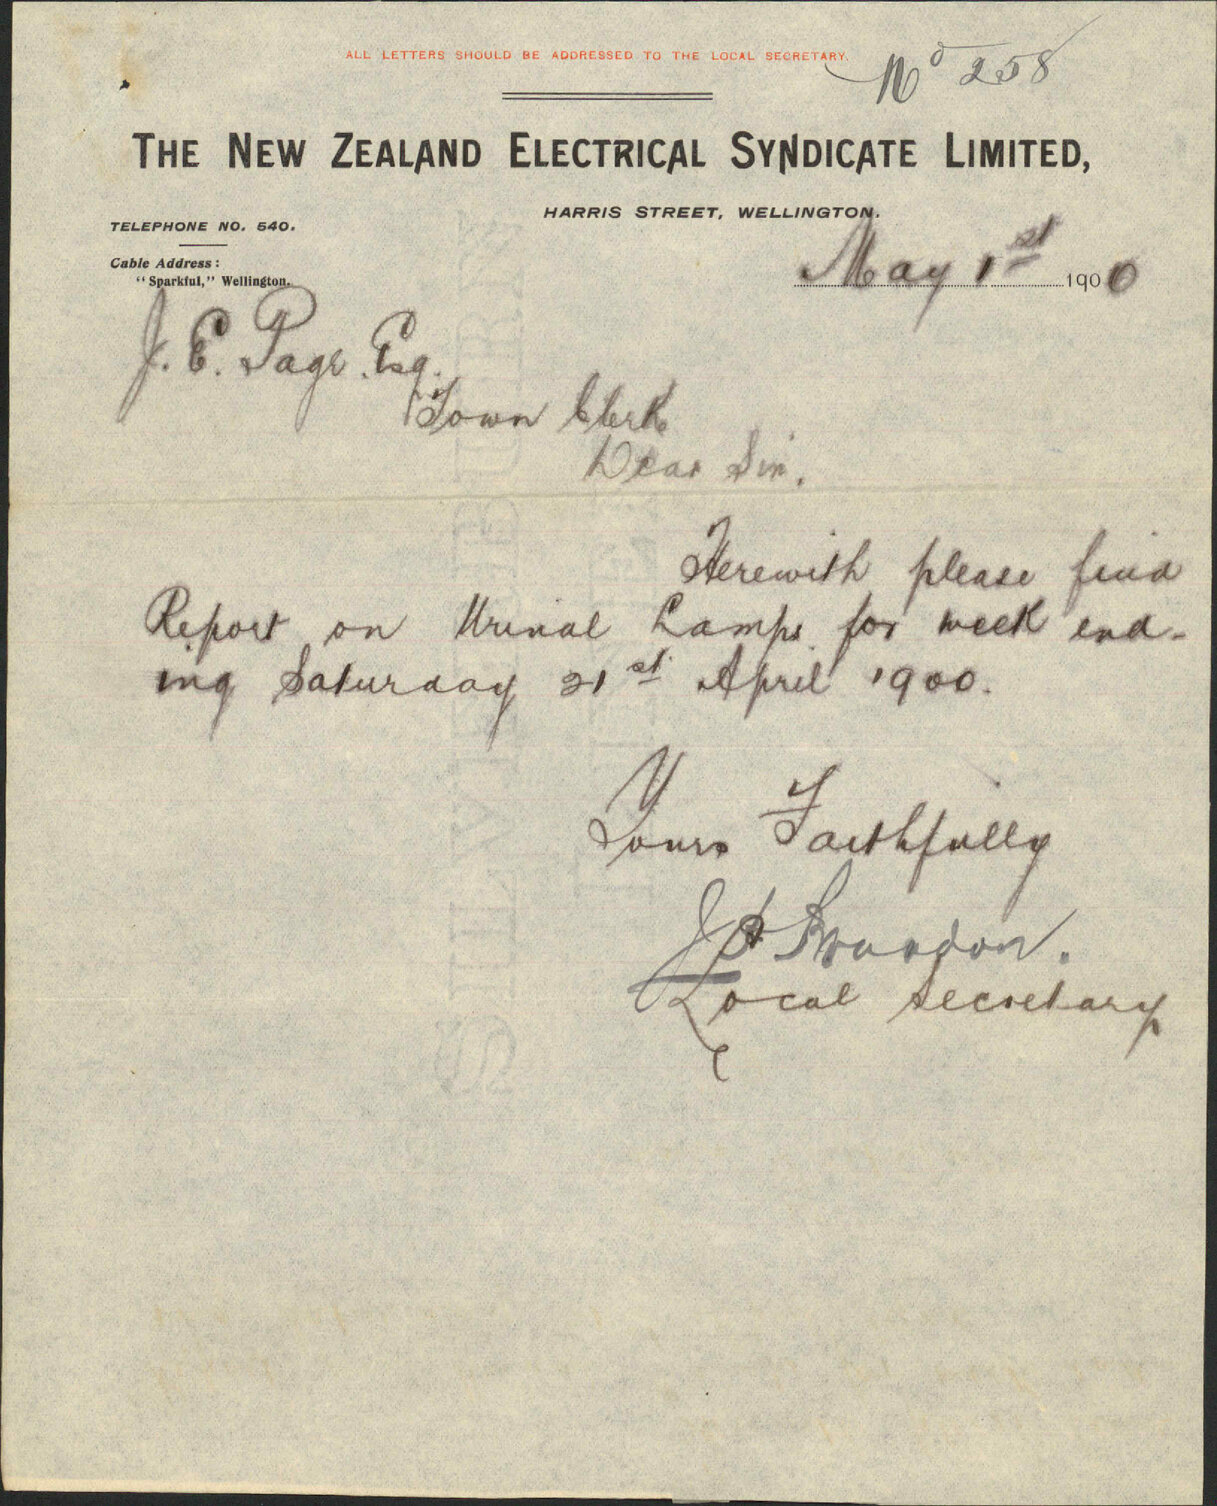 ALL LETTERS SHOULD BE ADDRESSED TO THE LOCAL SECRETARY.
No 258
THE NEW ZEALAND ELECTRICAL SYNDICATE LIMITED,
HARRIS STREET, WELLINGTON.
TELEPHONE NO. 540.
Cable Address:
"Sparkful," Wellington.
May 1st 1900
J. E. Page Esq.
Town Clerk
Dear Sir,
Herewith please find
Report on Urinal Lamps for week end-
ing Saturday 21st April 1900.
Yours Faithfully
Brandon.
Local Secretary